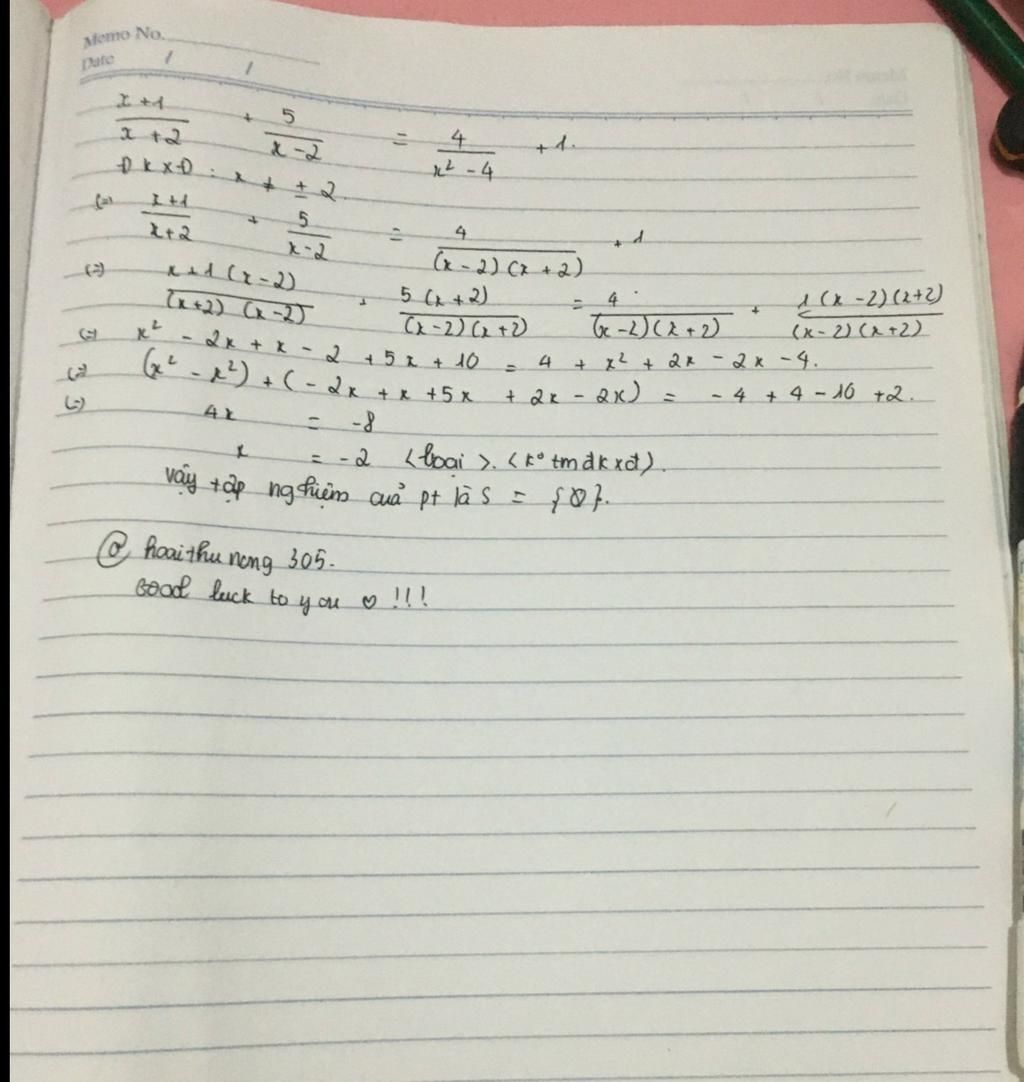 Memo No.
Date / /
x+1/x+2 + 5/x-2 = 4/x²-4 + 1.
ĐKXĐ : x ≠ ± 2.
(=) x+1/x+2 + 5/x-2 = 4/(x-2)(x+2) + 1
(=) x+1(x-2)/(x+2)(x-2) + 5(x+2)/(x-2)(x+2) = 4/(x-2)(x+2) + 1(x-2)(x+2)/(x-2)(x+2)
(=) x² - 2x + x - 2 + 5x + 10 = 4 + x² + 2x - 2x - 4.
(=) (x² - x²) + (- 2x + x + 5x + 2x - 2x) = - 4 + 4 - 10 + 2.
(=) 4x = -8
x = -2 <loại>. <k° tm đkxđ).
vậy tập nghiệm cuả pt là S = {∅}.
@ hoaithunong 305.
Good luck to you ♡ !!!